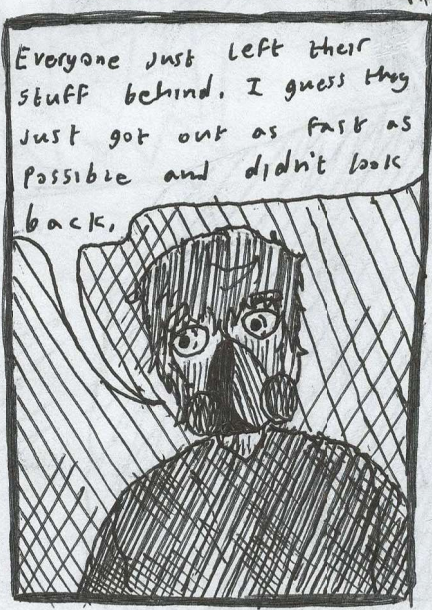 Everyone just left their
stuff behind. I guess they
just got out as fast as
possible and didn't look
back.